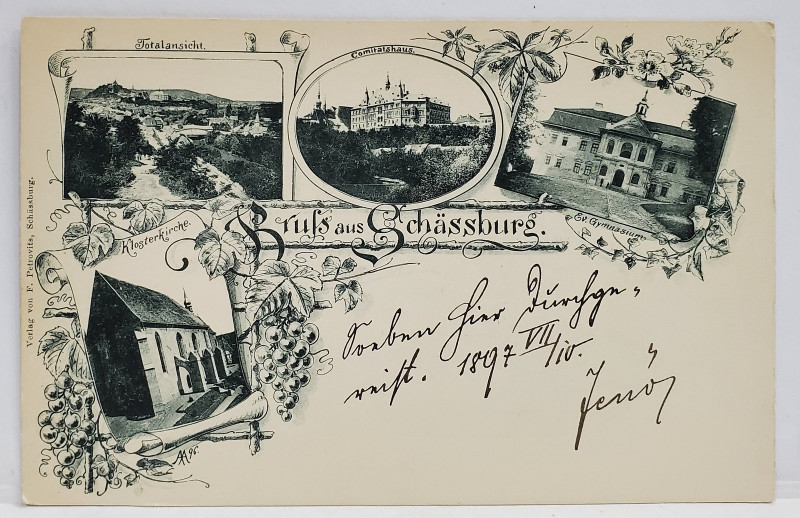 Totalansicht.
Comitatshaus.
Ev. Gymnasium
Gruß aus Schässburg.
Klosterkirche.
Verlag von F. Petrovits, Schässburg.
Soeben hier durchge-
reist. 1897 VII/10.
Jenő